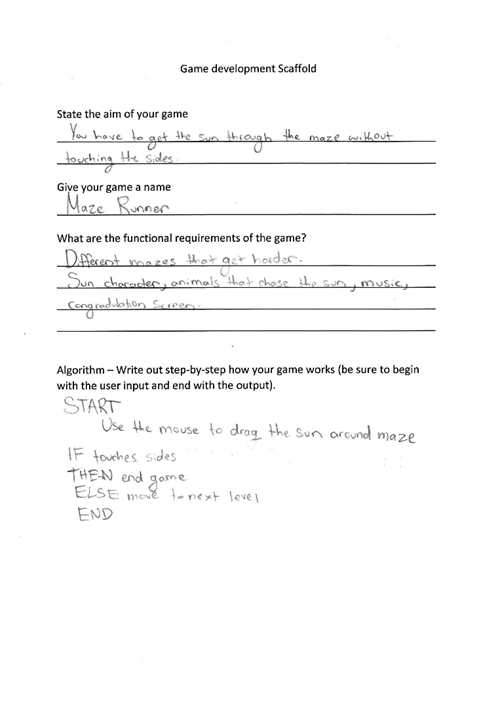 Game development Scaffold
State the aim of your game
You have to get the sun through the maze without
touching the sides.
Give your game a name
Maze Runner
What are the functional requirements of the game?
Different mazes that get harder.
Sun character, animals that chase the sun, music,
congradulation screen.
Algorithm – Write out step-by-step how your game works (be sure to begin
with the user input and end with the output).
START
Use the mouse to drag the sun around maze
IF touches sides
THEN end game
ELSE move to next level
END